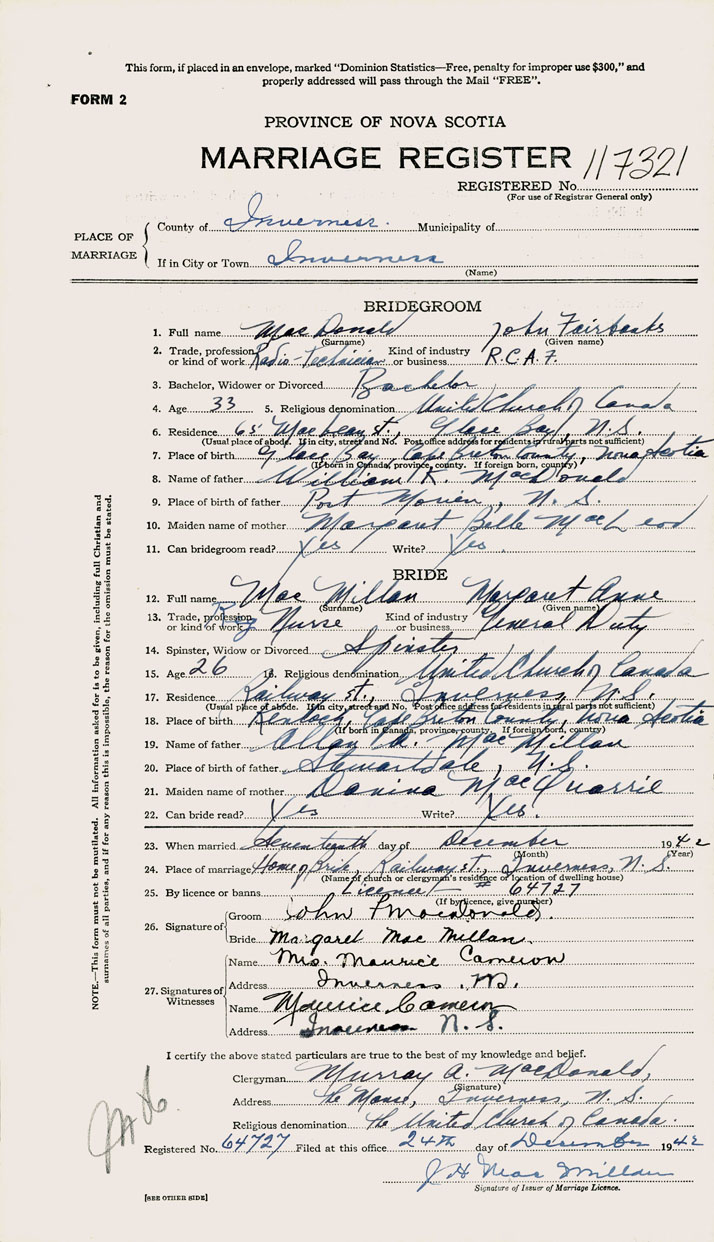 This form, if placed in an envelope, marked "Dominion Statistics—Free, penalty for improper use $300," and
properly addressed will pass through the Mail "FREE".
FORM 2
PROVINCE OF NOVA SCOTIA
MARRIAGE REGISTER 117321
REGISTERED No.
(For use of Registrar General only)
PLACE OF MARRIAGE
County of Inverness. Municipality of
If in City or Town Inverness
(Name)
BRIDEGROOM
1. Full name MacDonald John Fairbanks
(Surname) (Given name)
2. Trade, profession or kind of work Radio-Technician Kind of industry or business R.C.A.F.
3. Bachelor, Widower or Divorced Bachelor
4. Age 33 5. Religious denomination United Church of Canada
6. Residence 65 MacLean st., Glace Bay, N.S.
(Usual place of abode. If in city, street and No. Post office address for residents in rural parts not sufficient)
7. Place of birth Glace Bay, Cape Breton County, Nova Scotia
(If born in Canada, province, county. If foreign born, country)
8. Name of father William K. MacDonald
9. Place of birth of father Port Morien, N.S.
10. Maiden name of mother Margaret Belle MacLeod
11. Can bridegroom read? Yes Write? Yes.
BRIDE
12. Full name MacMillan Margaret Anne
(Surname) (Given name)
13. Trade, profession or kind of work Reg Nurse Kind of industry or business General Duty
14. Spinster, Widow or Divorced Spinster
15. Age 26 16. Religious denomination United Church of Canada
17. Residence Railway st., Inverness, N.S.
(Usual place of abode. If in city, street and No. Post office address for residents in rural parts not sufficient)
18. Place of birth Kenloch, Cape Breton County, Nova Scotia
(If born in Canada, province, county. If foreign born, country)
19. Name of father Allan M. MacMillan
20. Place of birth of father Stewartdale, N.S.
21. Maiden name of mother Danina MacQuarrie
22. Can bride read? Yes Write? Yes.
23. When married Seventeenth day of December 1942
(Month) (Year)
24. Place of marriage Home of Bride, Railway st., Inverness, N.S.
(Name of church or clergyman's residence or location of dwelling house)
25. By licence or banns Licence # 64727
(If by licence, give number)
26. Signature of
Groom John F Macdonald.
Bride Margaret MacMillan.
27. Signatures of Witnesses
Name Mrs. Maurice Cameron
Address Inverness, N.S.
Name Maurice Cameron
Address Inverness N.S.
I certify the above stated particulars are true to the best of my knowledge and belief.
Clergyman Murray A. MacDonald,
(Signature)
Address The Manse, Inverness, N.S.
Religious denomination the United Church of Canada.
Registered No. 64727 Filed at this office 24th day of December 1942
J H MacMillan
Signature of Issuer of Marriage Licence.
[SEE OTHER SIDE]
NOTE.—This form must not be mutilated. All information asked for is to be given, including full Christian and
surnames of all parties, and if for any reason this is impossible, the reason for the omission must be stated.